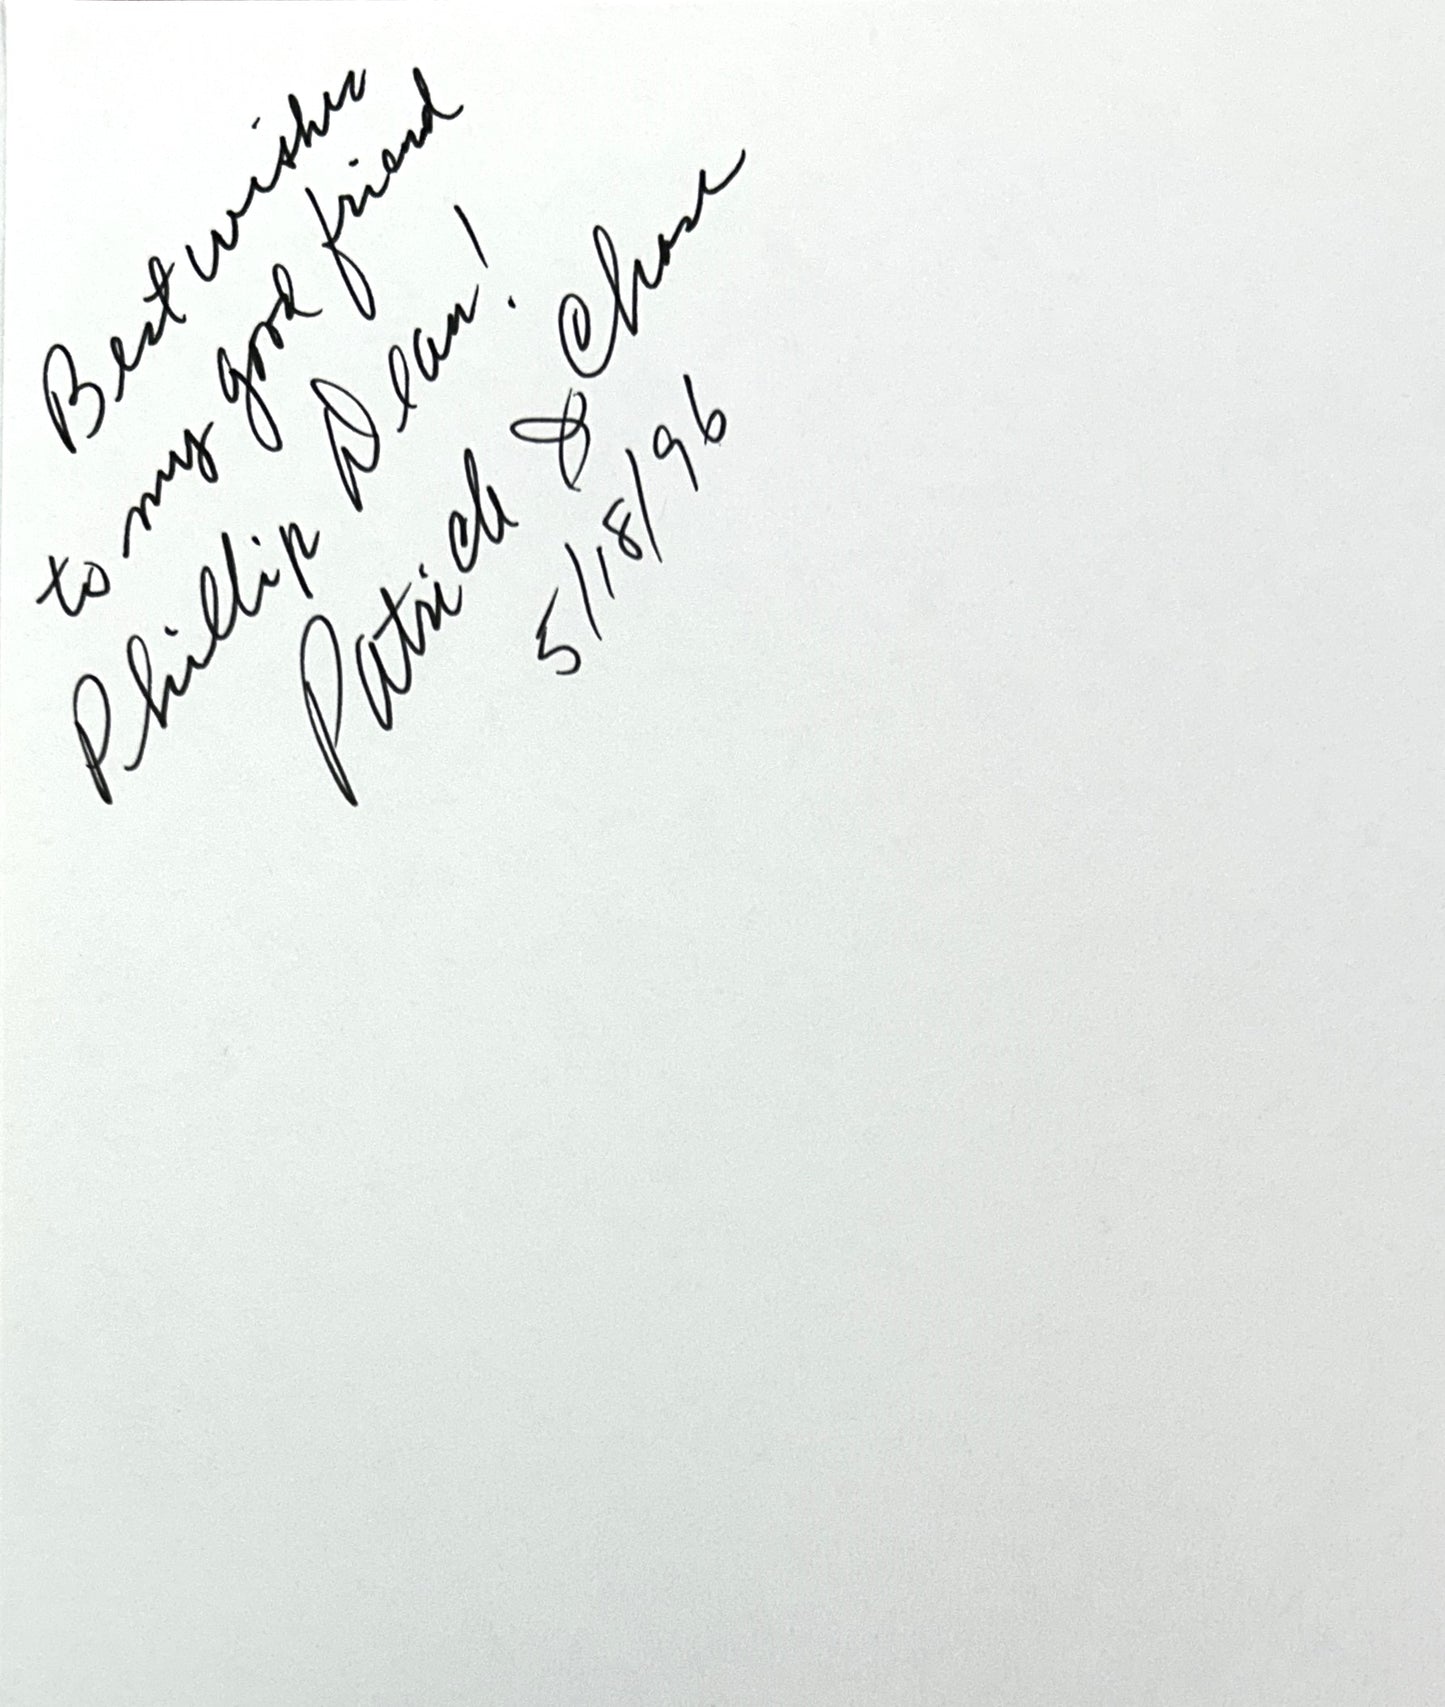 Best wishes
to my good friend
Phillip Dean!
Patrick & Chase
5/18/96